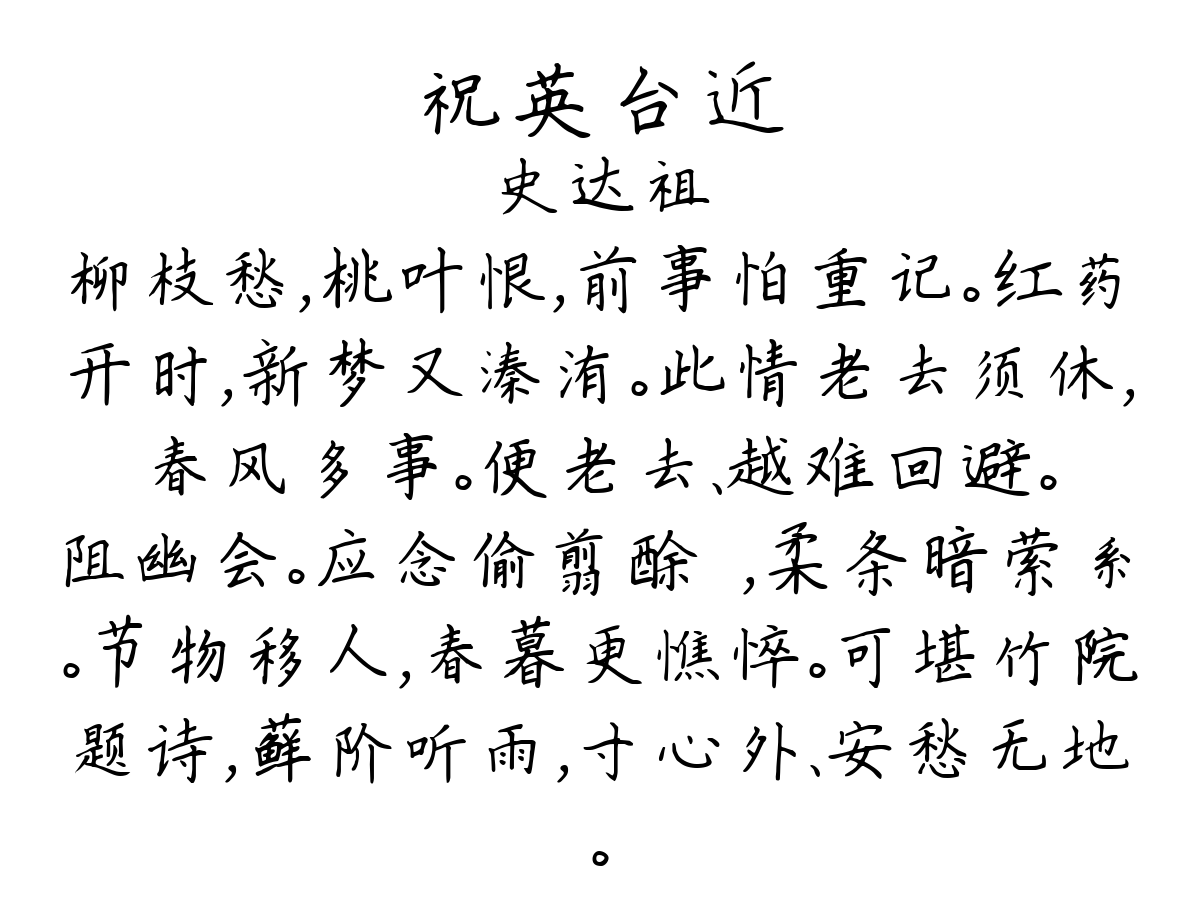 祝英台近
史达祖
柳枝愁,桃叶恨,前事怕重记。红药
开时,新梦又溱洧。此情老去须休,
春风多事。便老去、越难回避。
阻幽会。应念偷翦酴 ,柔条暗萦系
。节物移人,春暮更憔悴。可堪竹院
题诗,藓阶听雨,寸心外、安愁无地
。